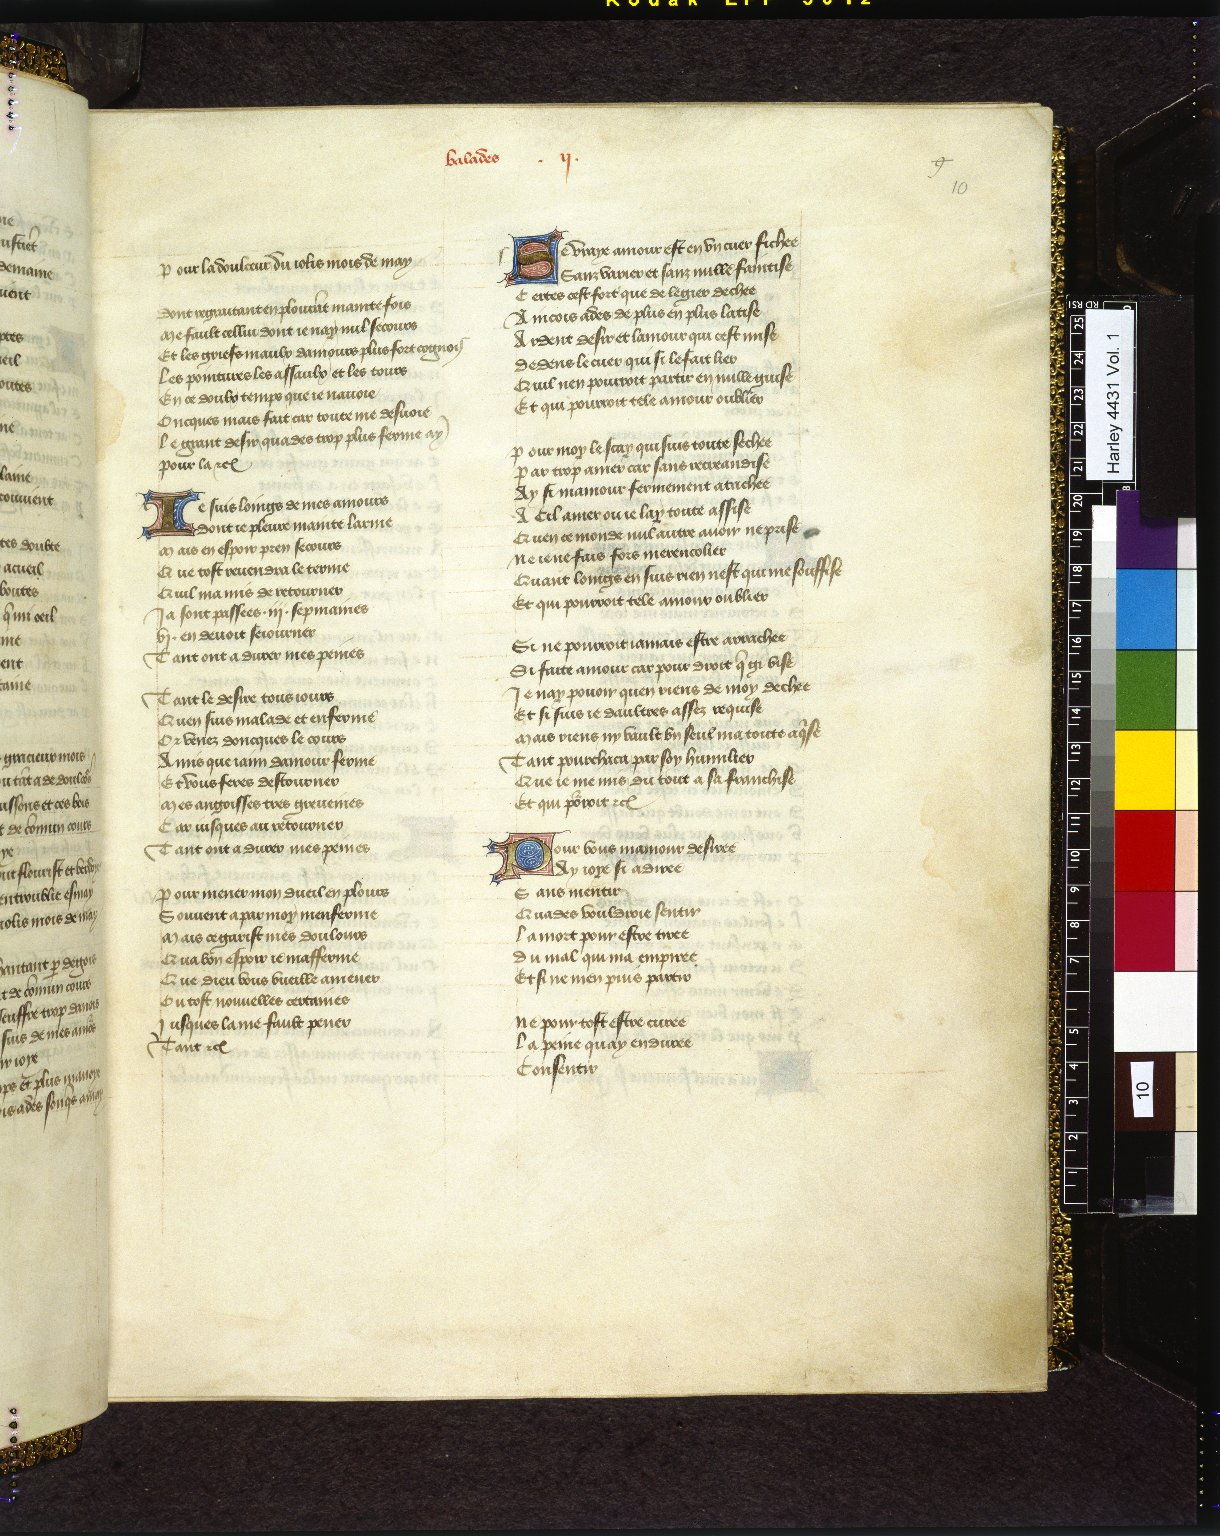 balades . ij.
9
10
Pour la doulceur du iolis mois de may
dont regraitant en plourant mainte fois
Me fault cellui dont ie nay nul secours
Et les griefs maulx damours plus fort cognois
Les pointures les assaulx et les tours
En ce doulx temps que ie nauoie
Oncques mais fait car toute me desuoie
Le grant desir quades trop plus ferme ay
pour la etc
Ie suis loings de mes amours
dont ie pleure mainte larme
Mais en espoir pren secours
Que tost reuendra le terme
Quil ma mis de retourner
Ja sont passees .iij. sepmaines
vj. en deuoit seiourner
Tant ont a durer mes peines
Tant le desire tous iours
Quen suis malade et enferme
Or venez doncques le cours
Amis que iaim damour ferme
Et vous feres destourner
Mes angoisses tres greueines
Car iusques au retourner
Tant ont a durer mes peines
Pour mener mon dueil en plours
Souuent a par moy menferme
Mais ce garist mes doulours
Qua bon espoir ie mafferme
Que dieu vous vueille amener
Ou tost nouuelles certaines
Jusques la me fault pener
Tant etc
Se vraye amour est en vn cuer fichee
Sanz varier et sanz nulle faintise
Certes cest fort que de legier dechee
Aincois ades de plus en plus latise
Ardent desir et lamour qui cest mise
dedens le cuer qui si le fait lier
Quil nen pourroit partir en nulle guise
Et qui pourroit tele amour oublier
Pour moy le scay qui suis toute sechee
Par trop amer car sans recreandise
Ay si mamour fermement atachee
A Cil amer ou ie lay toute assise
Quen ce monde nul autre auoir ne prise
Ne ie ne fais fors merencolier
Quant loings en suis rien nest qui me souffise
Et qui pourroit tele amour oublier
Si ne pourroit iamais estre arrachee
Si faite amour car pour droit qui gi vise
Je nay pouoir quen riens de moy dechee
Et si suis ie daultres assez requise
Mais riens ny vault vn seul ma toute aqise
Tant pourchaca par soy humilier
Que ie me mis du tout a sa franchise
Et qui porroit etc
Pour vous mamour desiree
Ay ioye si adiree
Sans mentir
Quades vouldroie sentir
La mort pour estre tiree
du mal qui ma empiree
Et si ne men puis partir
Ne pour tost estre curee
La peine quay enduree
Consentir
Harley 4431 Vol. 1
10